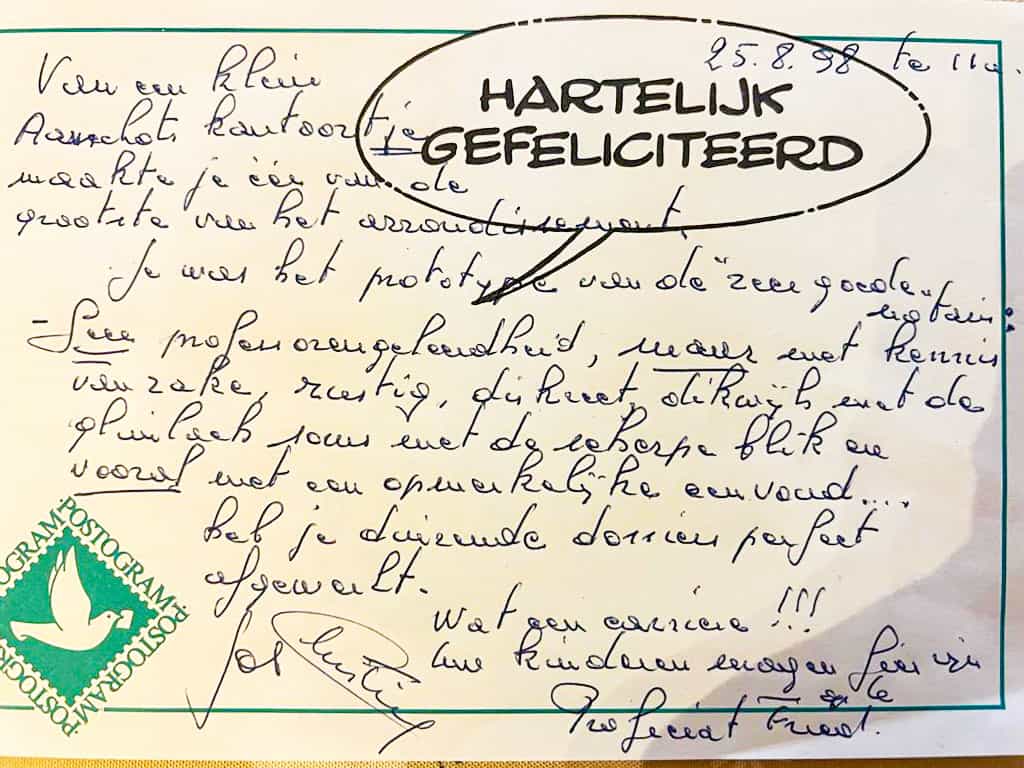 25.8.98 te 11u.
HARTELIJK
GEFELICITEERD
Van een klein
Aarschots kantoortje
maakte je één van de
grootste van het arrondissement.
Je was het prototype van de "zeer goede"
notaris:
- Geen professorengeleerdheid, maar met kennis
van zake, rustig, diskreet, dikwijls met de
glimlach soms met de scherpe blik en
vooral met een opmerkelijke eenvoud....
heb je duizende dossiers perfect
afgewerkt.
Wat een carrière !!!
Uw kinderen mogen fier zijn
op le
Proficiat Fried.
Jos
POSTOGRAM·POSTOGRAM·POSTOGRAM·POSTOGRAM